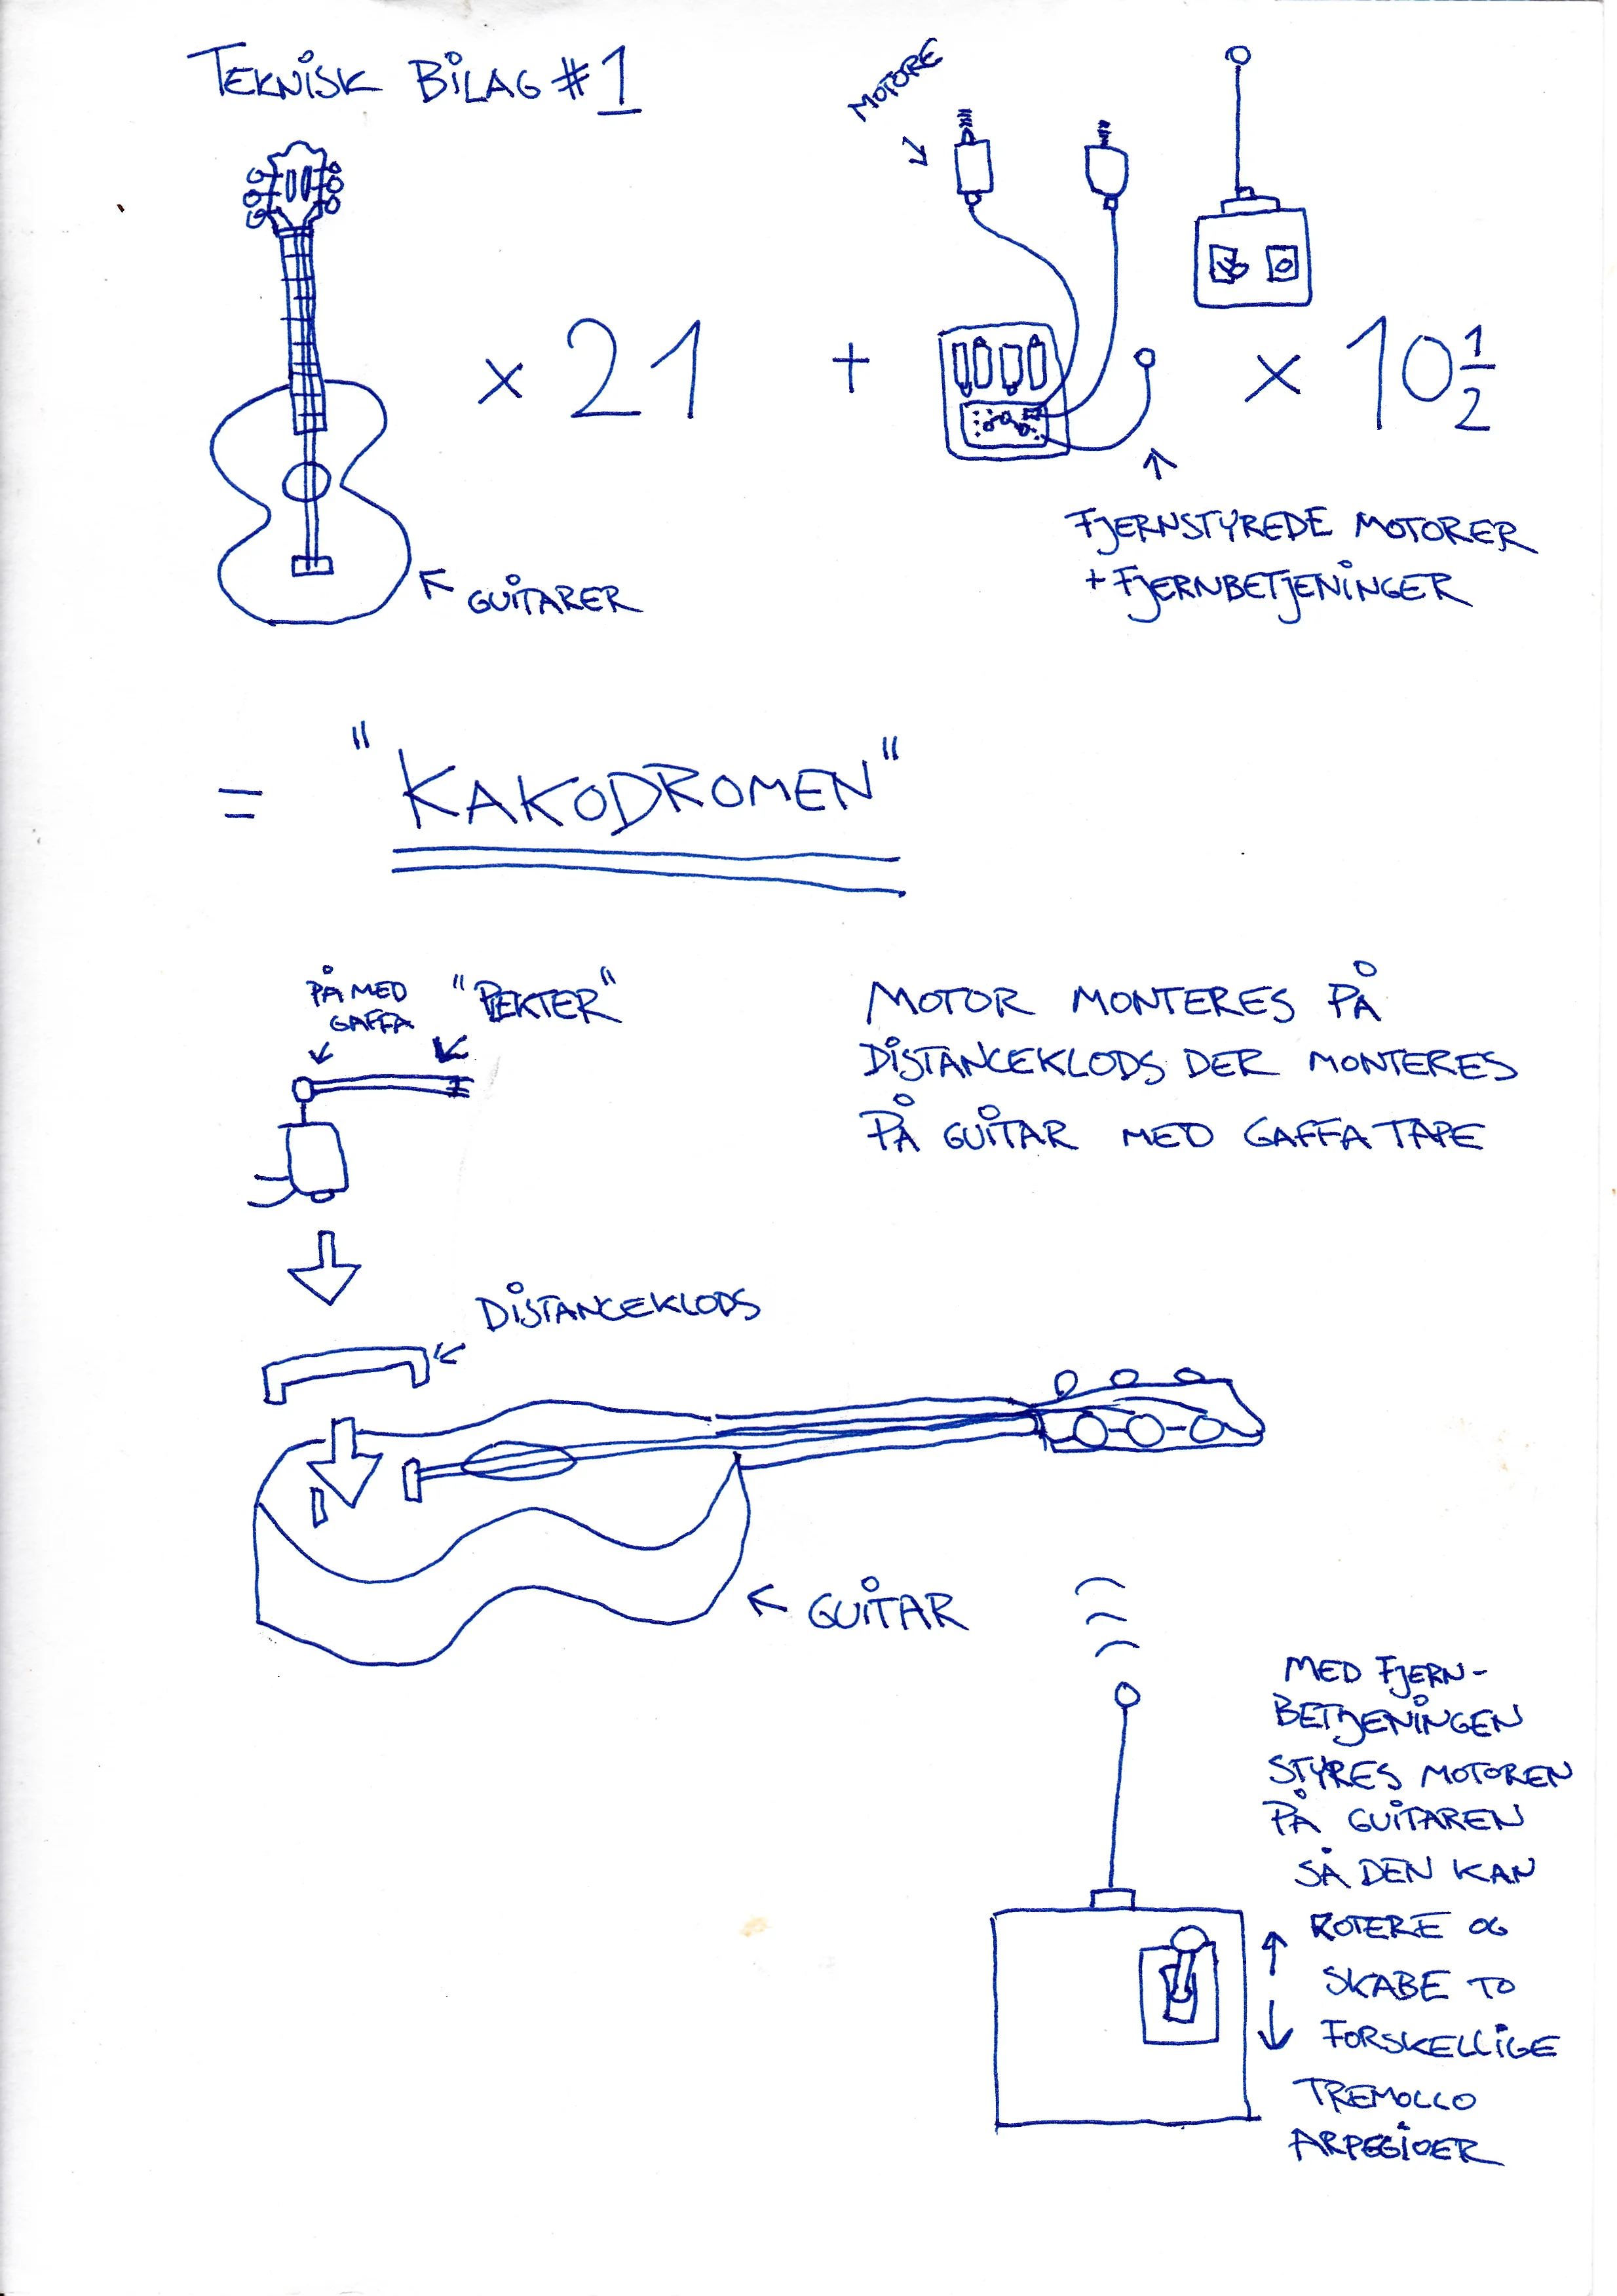 TEKNISK BILAG #1
MOTORE
x 21 + x 10 1/2
GUITARER
FJERNSTYREDE MOTORER
+ FJERNBETJENINGER
= "KAKODROMEN"
PÅ MED
GAFFA
"PLEKTER"
MOTOR MONTERES PÅ
DISTANCEKLODS DER MONTERES
PÅ GUITAR MED GAFFATAPE
DISTANCEKLODS
GUITAR
MED FJERN-
BETJENINGEN
STYRES MOTOREN
PÅ GUITAREN
SÅ DEN KAN
ROTERE OG
SKABE TO
FORSKELLIGE
TREMOLLO
ARPEGIOER